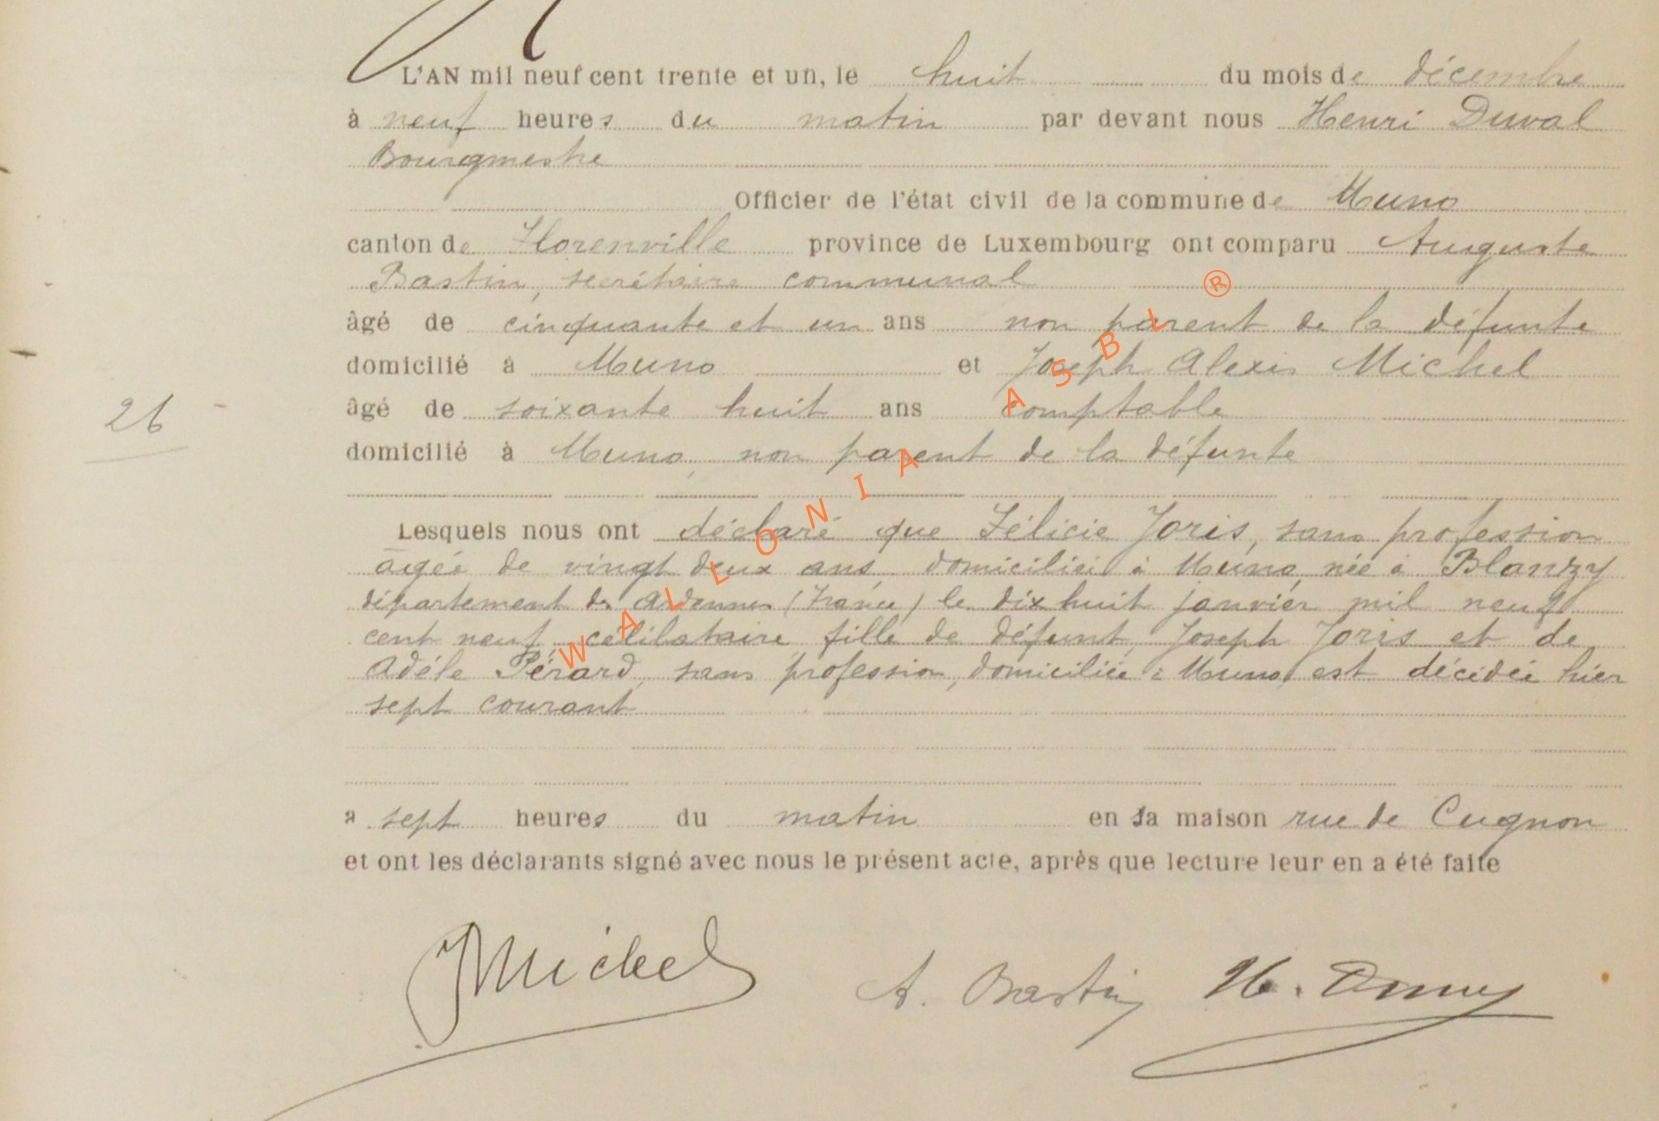 L'AN mil neuf cent trente et un, le huit du mois de décembre
à neuf heures du matin par devant nous Henri Duval
Bourgmestre
Officier de l'état civil de la commune de Muno
canton de Florenville province de Luxembourg ont comparu Auguste
Bastin, secrétaire communal
âgé de cinquante et un ans non parent de la défunte
domicilié à Muno et Joseph Alexis Michel
âgé de soixante huit ans comptable
26
domicilié à Muno, non parent de la défunte
Lesquels nous ont déclaré que Félicie Joris, sans profession
âgée de vingt deux ans, domiciliée à Muno, née à Blanzy
département des Ardennes (France) le dix huit janvier mil neuf
cent neuf, célibataire, fille de défunt Joseph Joris et de
Adèle Pérard, sans profession, domiciliée à Muno, est décédée hier
sept courant
à sept heures du matin en sa maison rue de Cugnon
et ont les déclarants signé avec nous le présent acte, après que lecture leur en a été faite
JMichel A. Bastin H.
WALLONIA ASBL ®